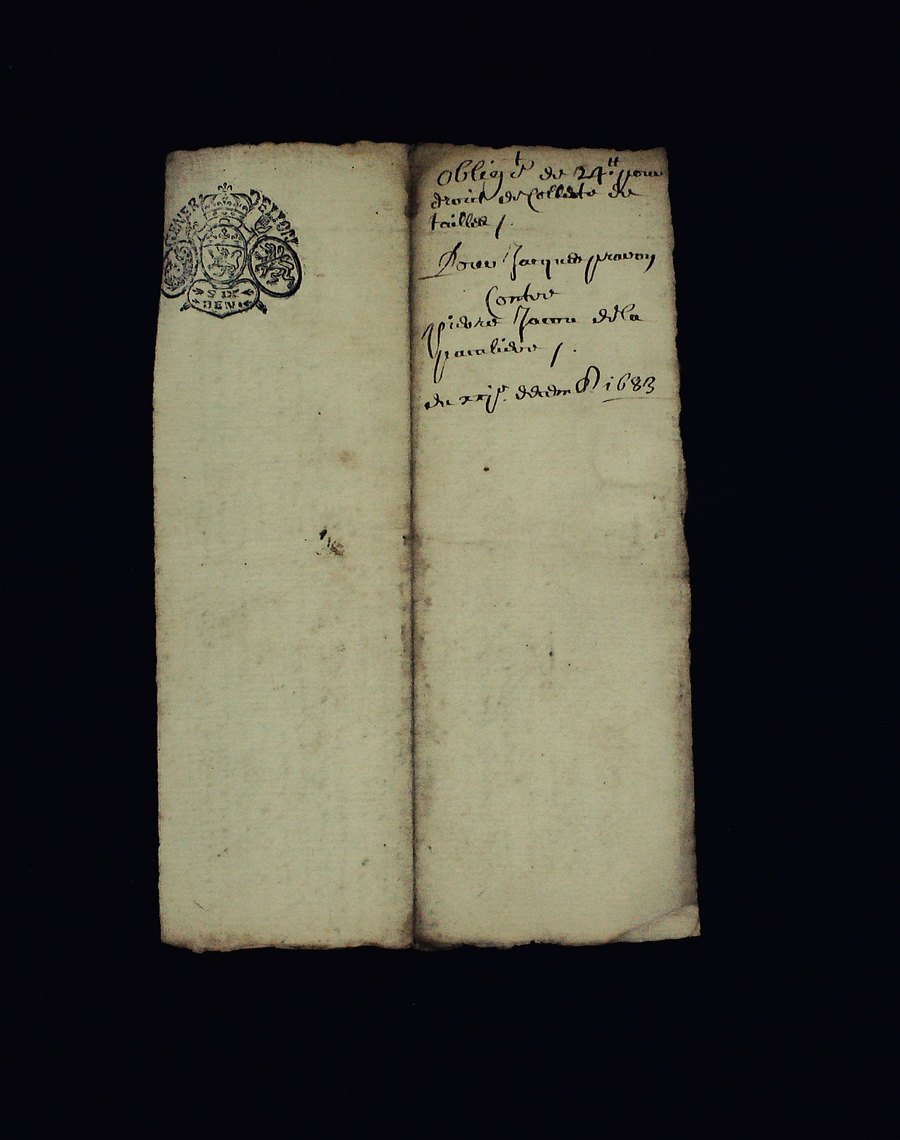 GENER DE LYON
SIX
DEN
Oblig^t de 24^tt pour
droict de Collecte de
tailles /.
Pour Jacques pravon
Contre
pierre Jacon de la
/.
du xxj^e decemb 1683